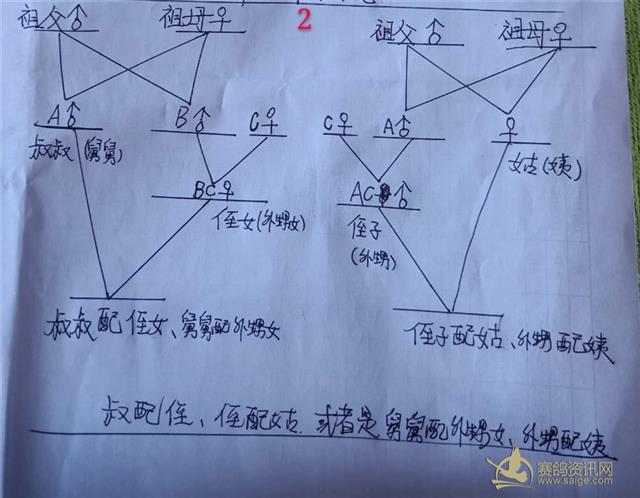 2
祖父♂ 祖母♀ 祖父♂ 祖母♀
A♂ B♂ C♀ C♀ A♂ ♀
叔叔(舅舅) 女古(姨)
BC♀ AC♂
侄女(外甥女) 侄子
(外甥)
叔叔配侄女、舅舅配外甥女 侄子配姑、外甥配姨
叔配侄、侄配姑.或者是舅舅配外甥女、外甥配姨
赛鸽资讯网
www.saige.com